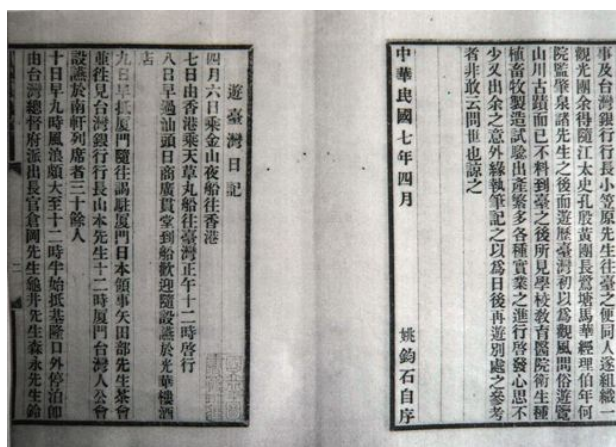 事及台灣銀行行長小笠原先生往臺之便同人遂組織一
觀光團余得隨江太史孔殷黃團長鷺塘馬華經理伯年何
院監肇泉諸先生之後而遊歷臺灣初以爲觀風問俗遊覽
山川古蹟而已不料到臺之後所見學校教育醫院衛生種
植畜牧製造試驗出產繁多各種實業之進行啓發心思不
少又出余之意外緣執筆記之以爲日後再遊別處之參考
者非敢云問世也諒之
中華民國七年四月
姚鈞石自序
遊臺灣日記
四月六日乘金山夜船往香港
七日由香港乘天草丸船往臺灣正午十二時啓行
八日早過汕頭日商廣貫堂到船歡迎隨設讌於光華樓酒
店
九日早抵厦門隨往謁駐厦門日本領事矢田部先生茶會
並往見台灣銀行行長山本先生十二時厦門台灣人公會
設讌於南軒列席者三十餘人
十日早九時風浪頗大至十二時半始抵基隆口外停泊卽
由台灣總督府派出長官倉岡先生龜井先生森永先生鈴